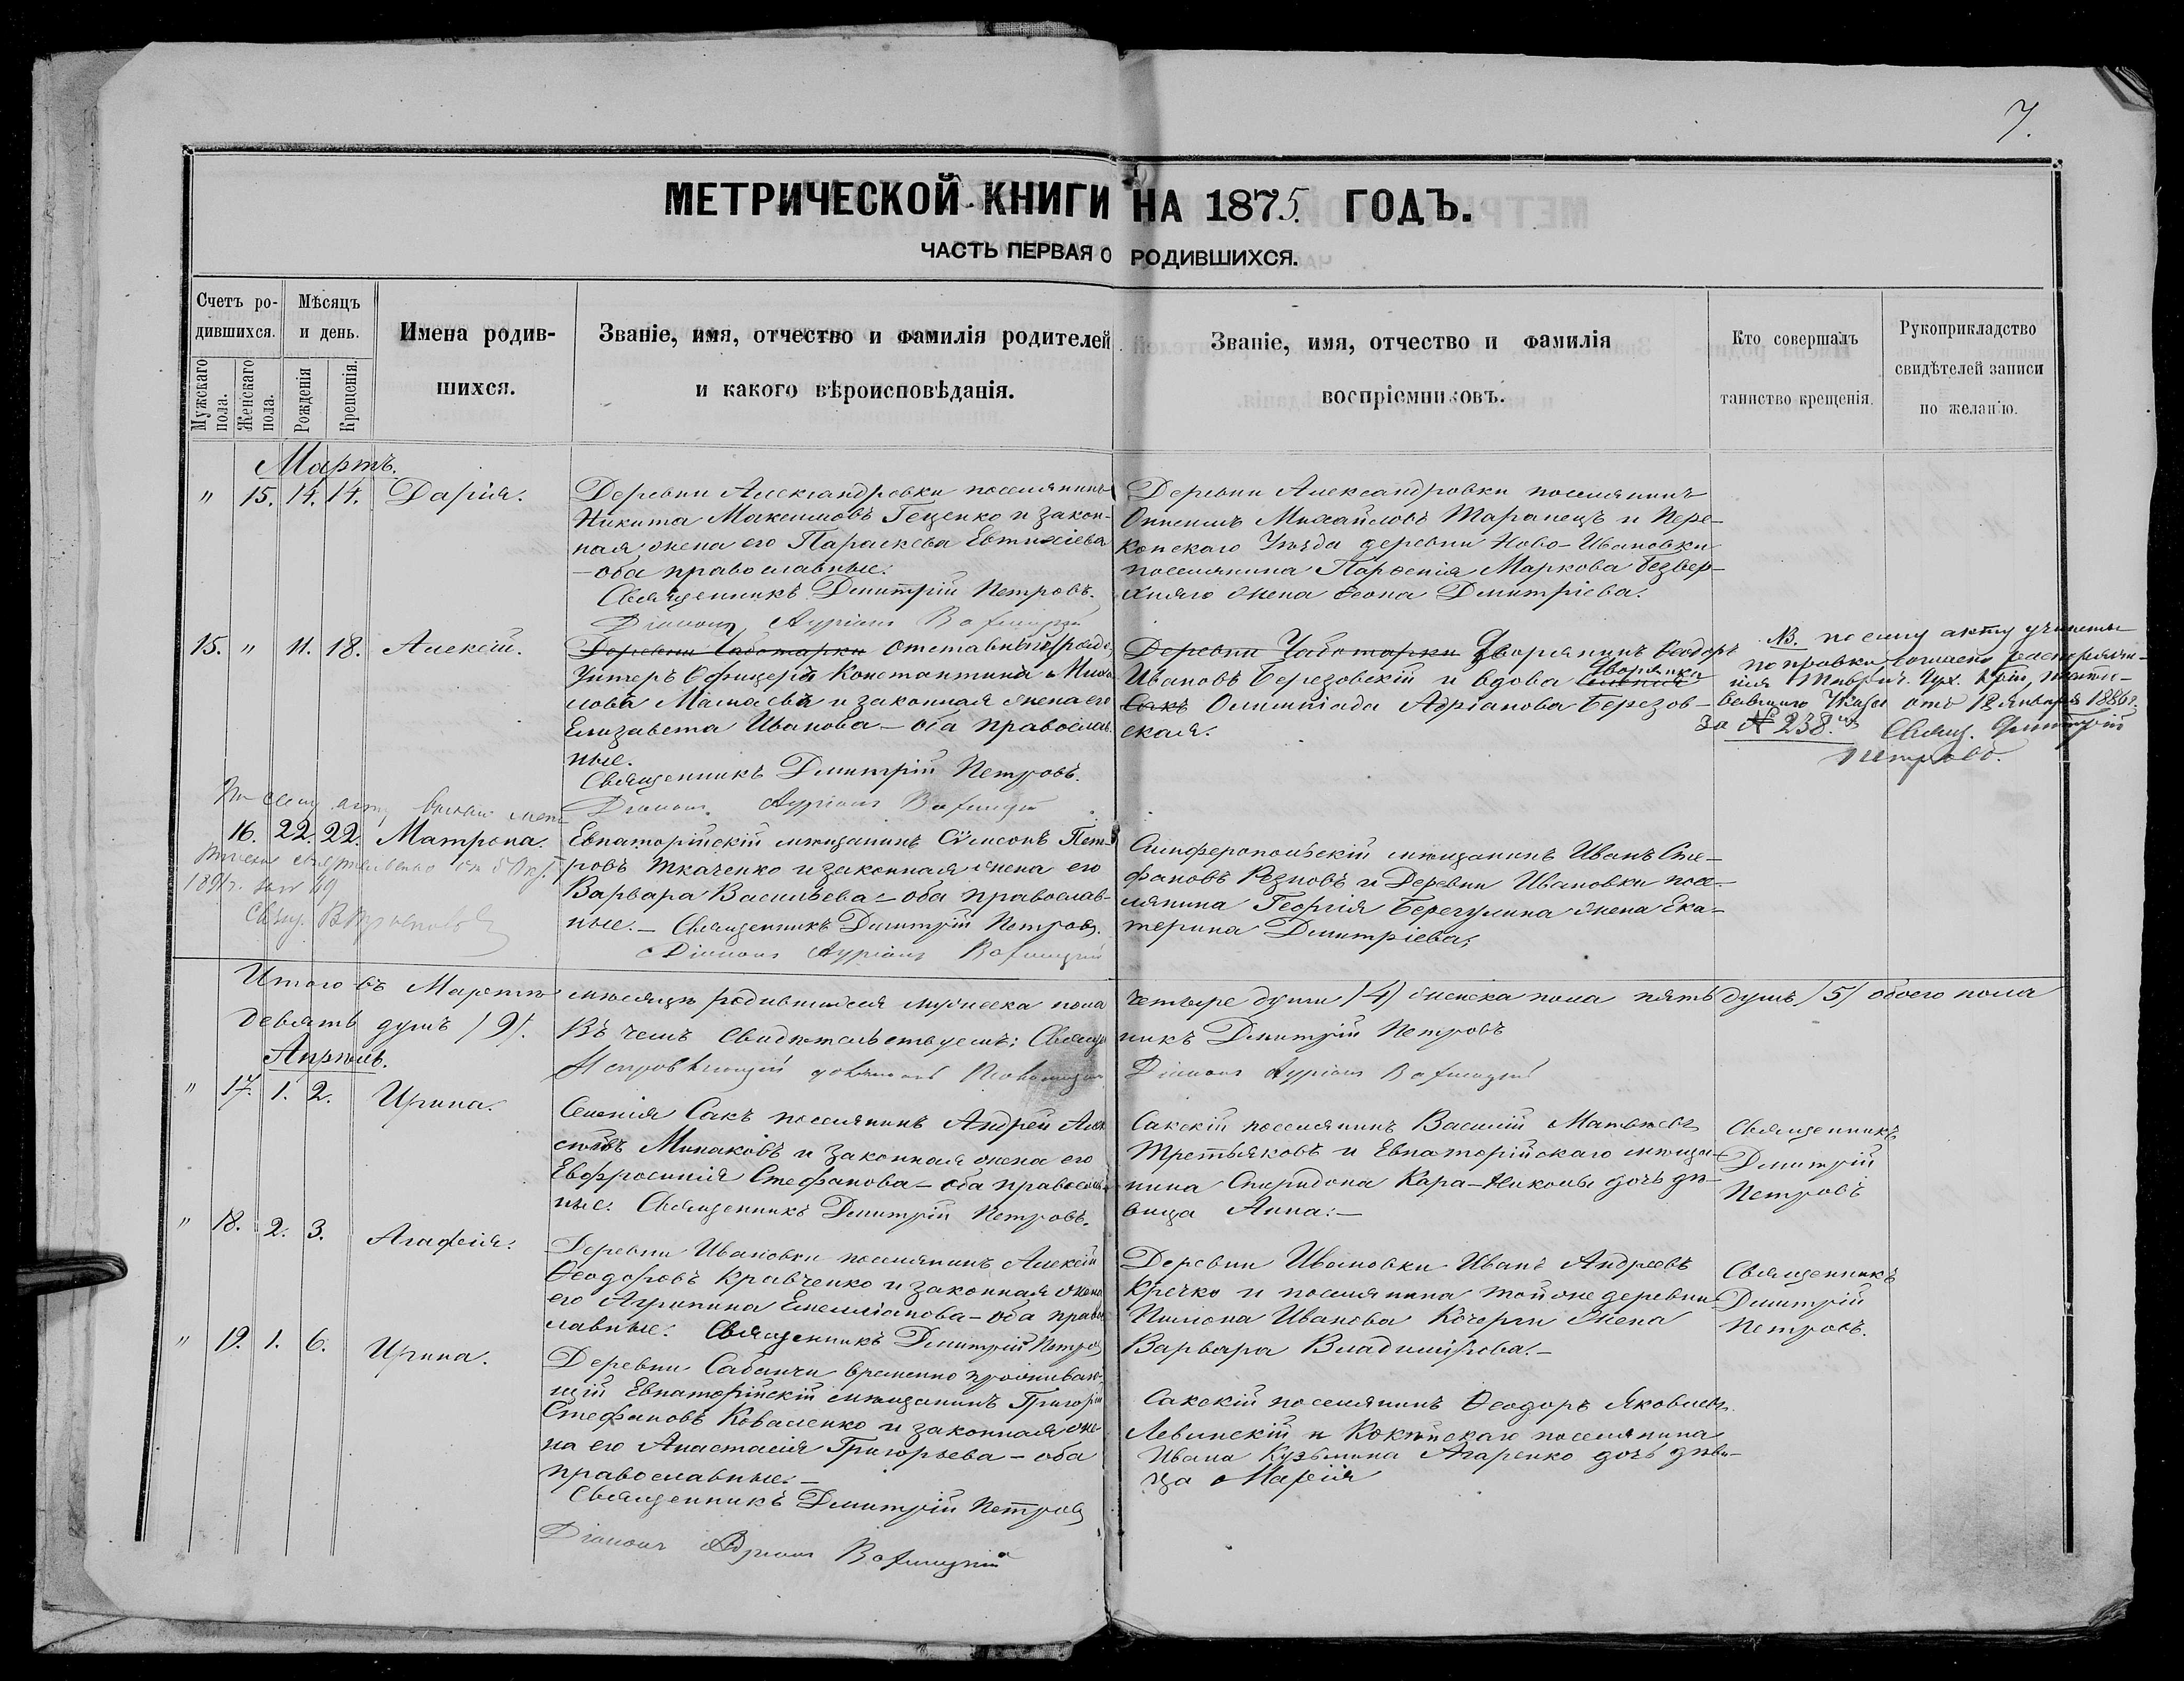 7.
МЕТРИЧЕСКОЙ КНИГИ НА 1875. ГОДЪ.
ЧАСТЬ ПЕРВАЯ О РОДИВШИХСЯ.
Счетъ ро-
дившихся.
Мужскаго пола.
Женскаго пола.
Мѣсяцъ
и день.
Рожденія
Крещенія.
Имена родив-
шихся.
Званіе, имя, отчество и фамилія родителей
и какого вѣроисповѣданія.
Званіе, имя, отчество и фамилія
воспріемниковъ.
Кто совершалъ
таинство крещенія.
Рукоприкладство
свидѣтелей записи
по желанію.
Мартъ.
" 15. 14. 14. Дарія.
Деревни Александровки поселянинъ
Никита Максимовъ Гещенко и закон-
ная жена его Параскева Евтихіева
– оба православные.
Священникъ Димитрій Петровъ.
Деревни Александровки поселянинъ
Михайловъ Таранецъ и Пере-
копскаго Уѣзда деревни Ново-Ивановки
поселянина Парѳенія Маркова Безвер-
хняго жена Ѳеона Димитріева.
15. " 11. 18. Алексій.
Деревни Чаботарки Отставный
Унтеръ Офицеръ Константинъ
Мамаевъ и законная жена его
Елизавета Иванова – оба православ-
ные.
Священникъ Димитрій Петровъ.
Деревни Чаботарки Дворянинъ Ѳеодоръ
Ивановъ Березовскій и вдова дворянка
Сакъ Олимпіада Адріанова Березов-
ская.
NB. по сему акту учинены
поправки согласно распоряже-
нія Таврич. Дух.
Указъ отъ 18 Января 1886 г.
за № 238. Свящ. Димитрій
Петровъ.
По сему акту
16. 22. 22. Матрона.
189
Свящ.
Евпаторійскій мѣщанинъ Сѵмеонъ Пет-
ровъ Ткаченко и законная жена его
Варвара Васильева – оба православ-
ные. – Священникъ Димитрій Петровъ.
Симферопольскій мѣщанинъ Иванъ Сте-
фановъ Резновъ и Деревни Ивановки посе-
лянина Георгія Берегулина жена Ека-
терина Димитріева.
Итого въ Мартѣ мѣсяцѣ родившихся мужеска пола четыре души /4/ женска пола пять душъ /5/ обоего пола
девять душъ /9/. Въ чемъ свидѣтельствуемъ: Священникъ Димитрій Петровъ
Апрѣль.
" 17. 1. 2. Ирина.
Селенія Сакъ поселянинъ Андрей
Минаковъ и законная жена его
Евфросинія Стефанова – оба православ-
ные. Священникъ Димитрій Петровъ.
Сакскій поселянинъ Василій Матвѣевъ
Третьяковъ и Евпаторійскаго мѣща-
нина Спиридона Кара-Николы дочь дѣ-
вица Анна. –
Священникъ
Димитрій
Петровъ
" 18. 2. 3. Агафія.
Деревни Ивановки поселянинъ Алексій
Ѳеодоровъ Кравченко и законная жена
его Агрипина Емелліанова – оба право-
славные. Священникъ Димитрій Петровъ
Деревни Ивановки Иванъ Андреевъ
Кречко и поселянина той же деревни
Пимона Иванова Кочерги жена
Варвара Владимірова. –
Священникъ
Димитрій
Петровъ.
" 19. 1. 6. Ирина.
Деревни Сабанчи временно проживаю-
щій Евпаторійскій мѣщанинъ Григорій
Стефановъ Коваленко и законная же-
на его Анастасія Григорьева – оба
православные. –
Священникъ Димитрій Петровъ
Сакскій поселянинъ Ѳеодоръ Яковлевъ
Левинскій и поселянина
Ивана Кузьмина Агаренко дочь дѣви-
ца Марія